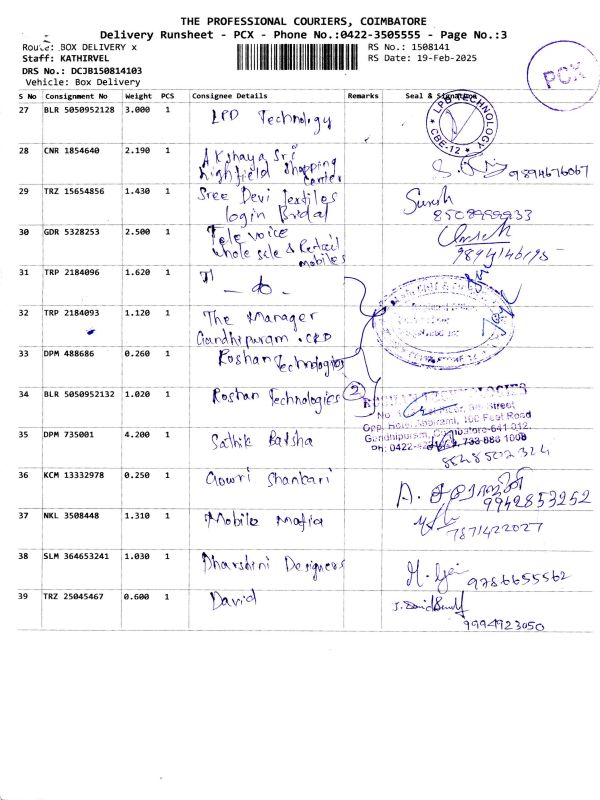 THE PROFESSIONAL COURIERS, COIMBATORE
Delivery Runsheet - PCX - Phone No.:0422-3505555 - Page No.:3
Route: BOX DELIVERY x
RS No.: 1508141
Staff: KATHIRVEL
RS Date: 19-Feb-2025
DRS No.: DCJB150814103
Vehicle: Box Delivery
PCX
S No Consignment No Weight PCS Consignee Details Remarks Seal & Signature
27 BLR 5050952128 3.000 1 LPD Technology
LPD TECHNOLOGY
CBE-12
28 CNR 1854640 2.190 1 Akshaya Sri
highfield shopping
center
9894676067
29 TRZ 15654856 1.430 1 Sree Devi Textiles
login Bridal
Suresh
8508999933
30 GDR 5328253 2.500 1 Tele voice
whole sale & Retail
mobiles
9894146195
31 TRP 2184096 1.620 1
32 TRP 2184093 1.120 1 The Manager
Gandhipuram . CRD
33 DPM 488686 0.260 1 Roshan Technologies
34 BLR 5050952132 1.020 1 Roshan Technologies 2
ROSHAN TECHNOLOGIES
Street
100 Feet Road
Gandhipuram, Coimbatore-641 012.
Ph: 0422-
35 DPM 735001 4.200 1 Sathik Batsha
8548502324
36 KCM 13332978 0.250 1 Gowri Shankari
9942853252
37 NKL 3508448 1.310 1 Mobile Mafia
7871422027
38 SLM 364653241 1.030 1 Dharshini Designers
9786655562
39 TRZ 25045467 0.600 1 David
9994923050